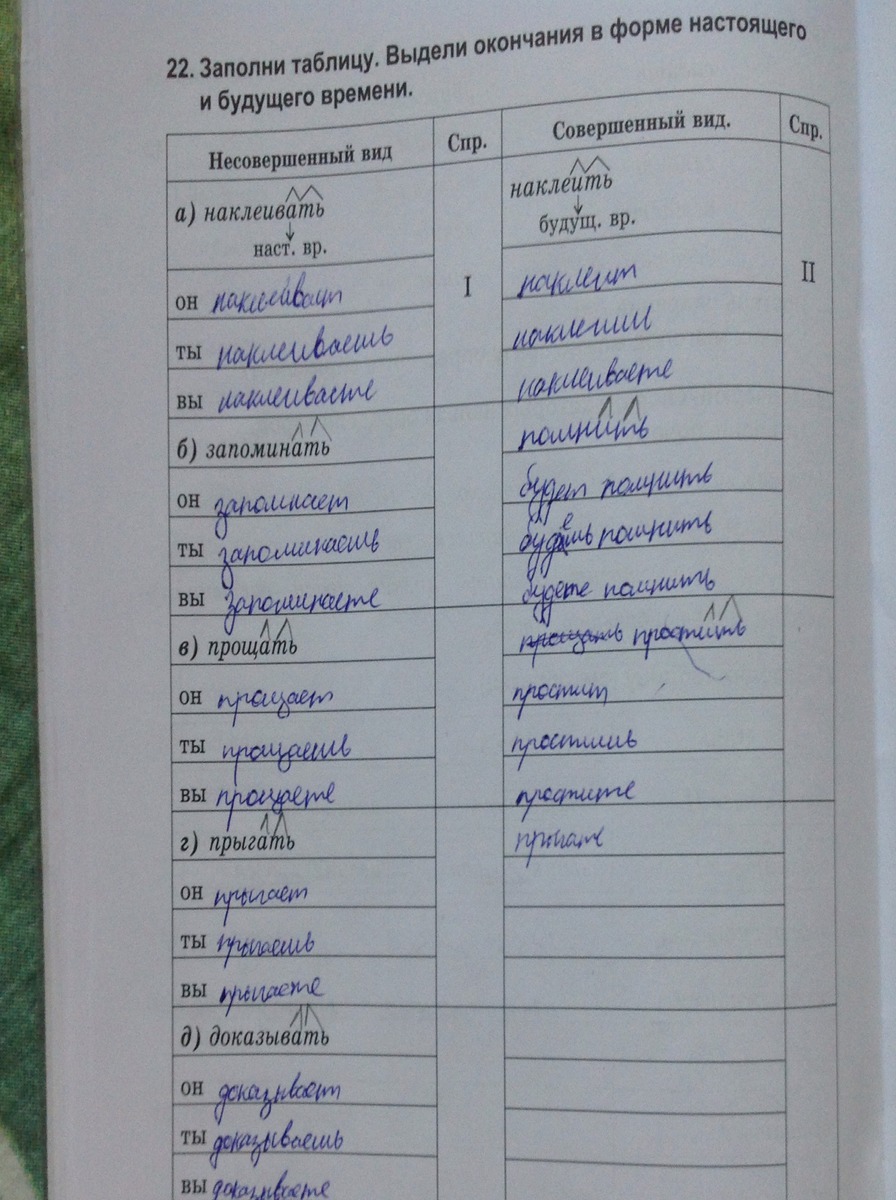 22. Заполни таблицу. Выдели окончания в форме настоящего
и будущего времени.
Несовершенный вид Спр. Совершенный вид. Спр.
а) наклеивать наклеить
наст. вр. будущ. вр.
он наклеивает I наклеит II
ты наклеиваешь наклеишь
вы наклеиваете наклеиваете
б) запоминать помнить
он запомнает будет помнить
ты запоминаешь будешь помнить
вы запоминаете будете помнить
в) прощать прощать простить
он прощает простит
ты прощаешь простишь
вы прощаете простите
г) прыгать
он прыгает
ты прыгаешь
вы прыгаете
д) доказывать
он доказывает
ты доказываешь
вы доказываете